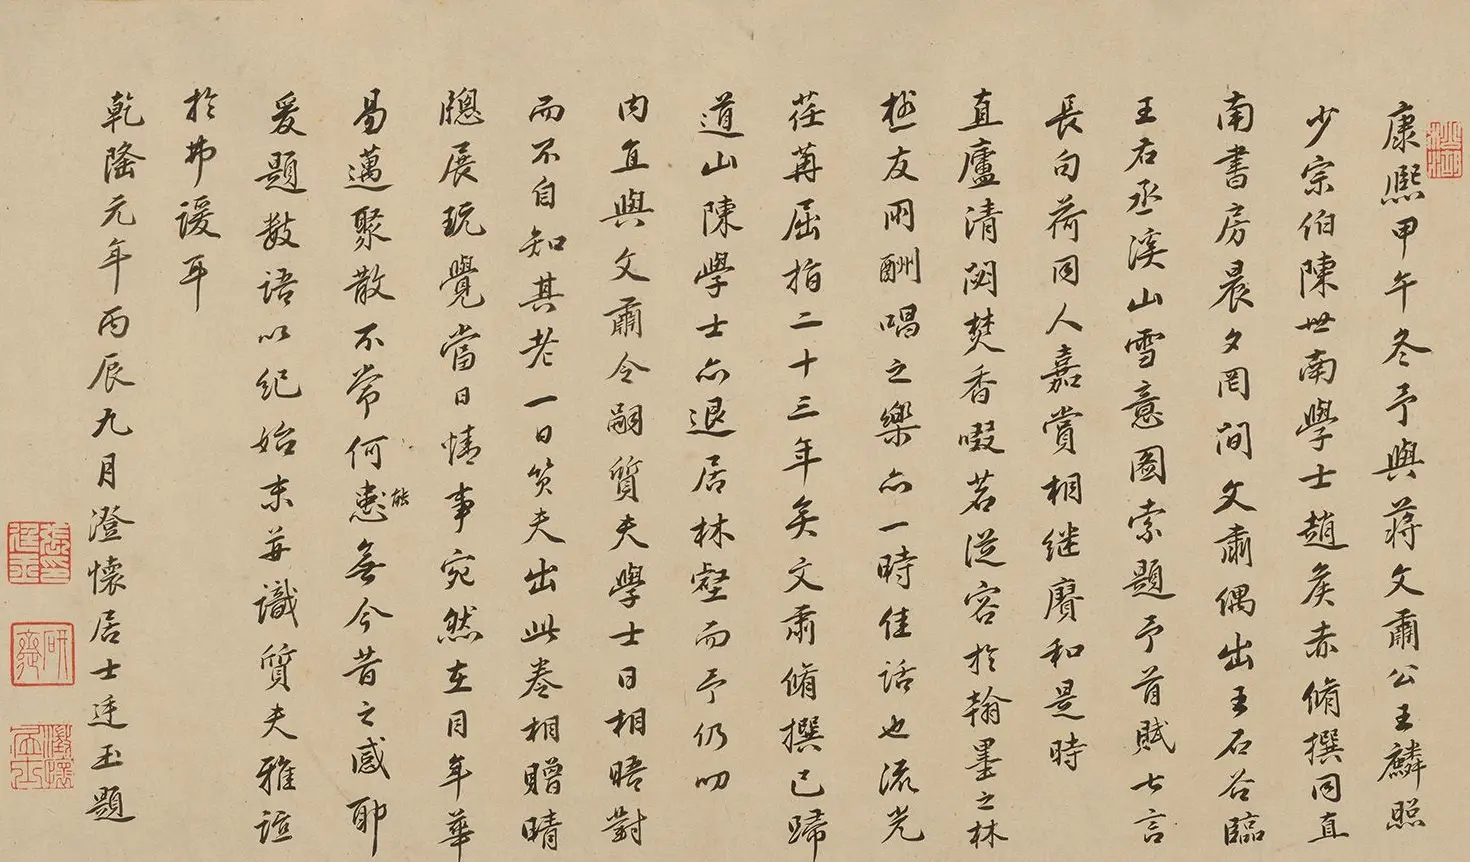 康熙甲午冬予與蔣文肅公王麟照
少宗伯陳世南學士趙矦赤脩撰同直
南書房晨夕罔間文肅偶出王石谷臨
王右丞溪山雪意圖索題予首賦七言
長句荷同人嘉賞相继賡和是時
直廬清閟焚香啜茗從容於翰墨之林
極友朋酬唱之樂亦一時佳話也流光
荏苒屈指二十三年矣文肅脩撰已歸
道山陳學士亦退居林壑而予仍叨
内直與文肅令嗣質夫學士日相晤對
而不自知其老一日質夫出此卷相贈晴
牕展玩覺當日情事宛然在目年華
易邁聚散不常何能無今昔之感耶
爰題數語以紀始末并識質夫雅誼
於弗諼耳
乾隆元年丙辰九月澄懷居士廷玉題
張廷玉印
研齋
澄懷居士